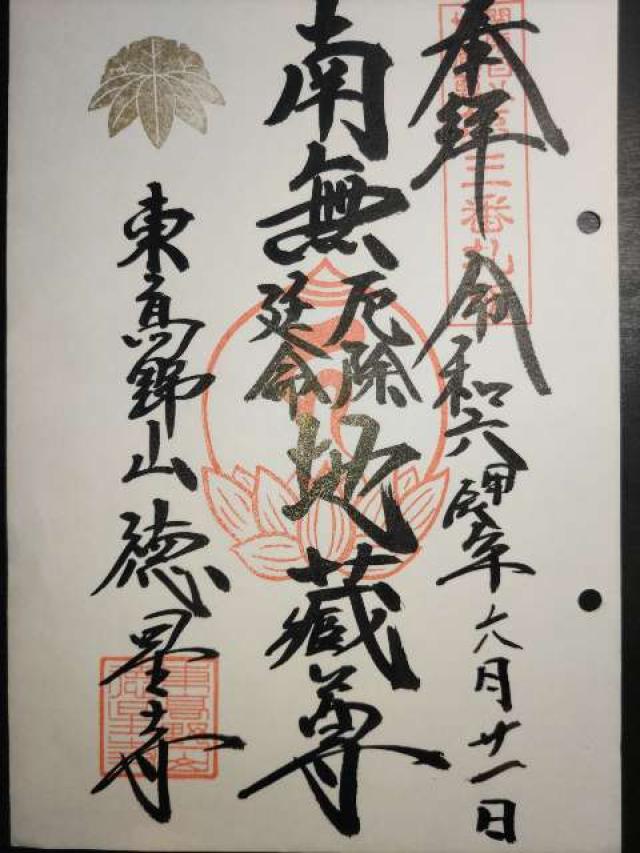 奉拝
第三番札
令和六甲辰年六月廿一日
南無
厄除
延命
地蔵尊
東高野山
徳星寺